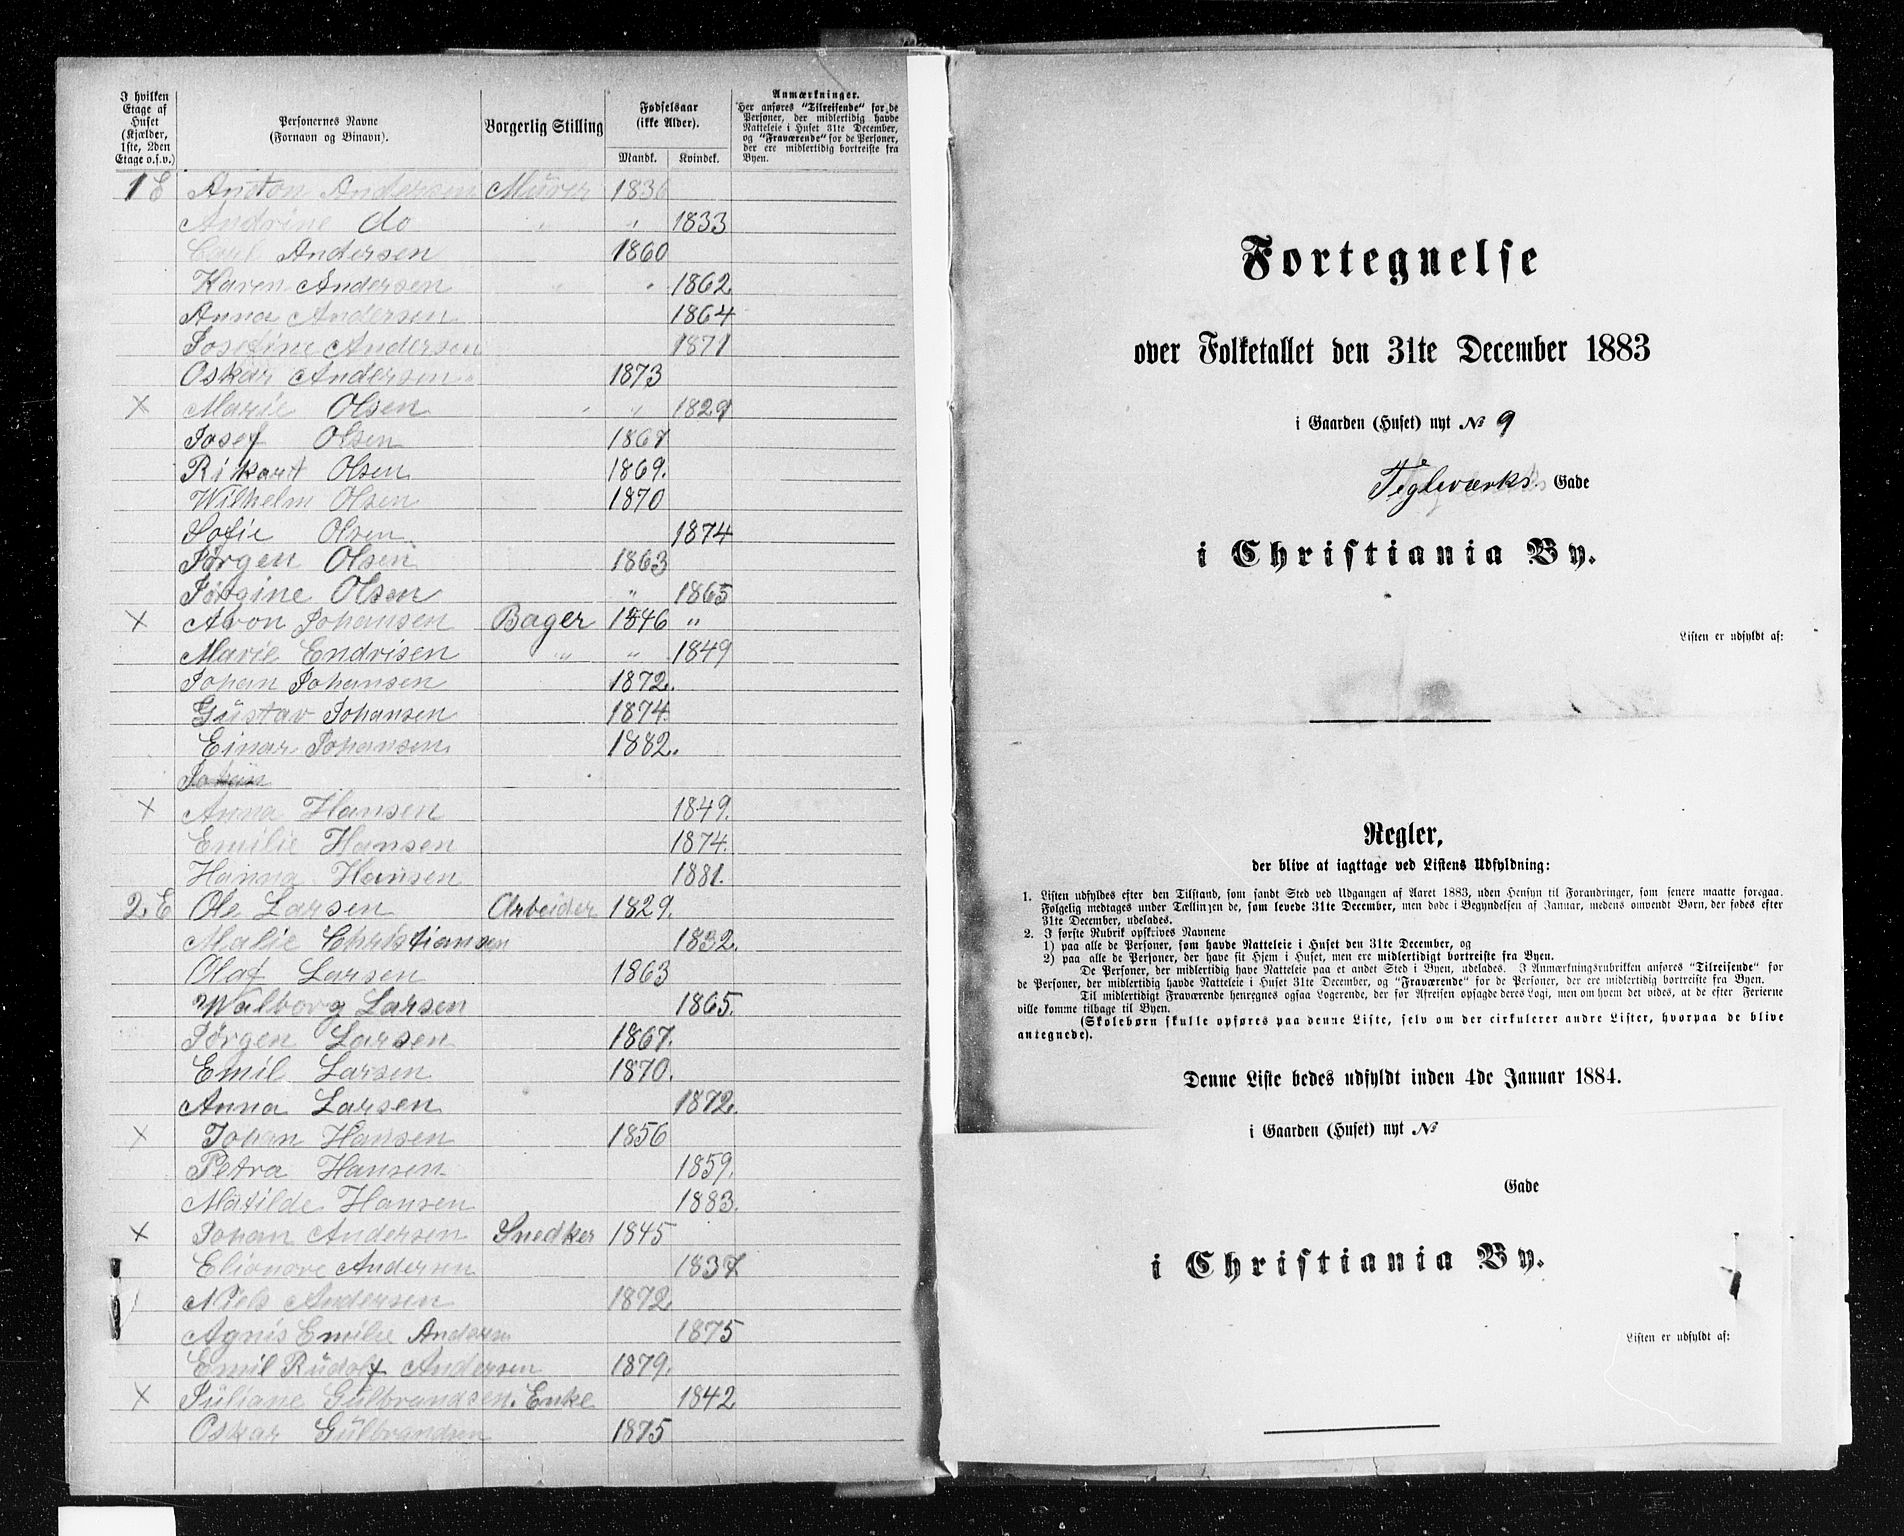 I hvilken
Etage af
Huset
(Kjælder,
1ste, 2den
Etage o.s.v.)
Personernes Navne
(Fornavn og Binavn).
Borgerlig Stilling
Fødselsaar
(ikke Alder).
Mandk. Kvindek.
Anmærkninger.
Her anføres "Tilreisende" for de
Personer, der midlertidig havde
Natteleie i Huset 31te December,
og "Fraværende" for de Personer,
der ere midlertidig bortreiste fra
Byen.
1 E Anton Andersen Murer 1836
Andrine do " " 1833
Carl Andersen 1860
Karen Andersen " " 1862
Anna Andersen 1864
Josefine Andersen 1871
Oskar Andersen 1873
X Marie Olsen " " 1829
Josef Olsen 1867
Rikart Olsen 1869.
Wilhelm Olsen 1870
Sofie Olsen 1874
Jørgen Olsen 1863
Jørgine Olsen " 1865
X Aron Johansen Bager 1846 "
Marie Endrisen " " 1849
Johan Johansen 1872.
Gustav Johansen 1874.
Einar Johansen 1882.
X Anna Hansen 1849.
Emilie Hansen 1874.
Hanna Hansen 1881.
2. E Ole Larsen Arbeider 1829.
Malie Christiansen 1832.
Olaf Larsen 1863
Walborg Larsen 1865.
Jørgen Larsen 1867.
Emil Larsen 1870.
Anna Larsen 1872.
X Johan Hansen 1856
Petra Hansen 1859.
Matilde Hansen 1883.
X Johan Andersen Snedker 1845
Elionore Andersen 1837
Niels Andersen 1872.
Agnis Emilie Andersen 1875
Emil Rudolf Andersen 1879.
X Juliane Gulbrandsen. Enke 1842
Oskar Gulbrandsen 1875
Fortegnelse
over Folketallet den 31te December 1883
i Gaarden (Huset) nyt № 9
Teglværks. Gade
i Christiania By.
Listen er udfyldt af:
Regler,
der blive at iagttage ved Listens Udfyldning:
1. Listen udfyldes efter den Tilstand, som fandt Sted ved Udgangen af Aaret 1883, uden Hensyn til Forandringer, som senere maatte foregaa.
Følgelig medtages under Tællingen de, som levede 31te December, men døde i Begyndelsen af Januar, medens omvendt Børn, der fødes efter
31te December, udelades.
2. I første Rubrik opskrives Navnene
1) paa alle de Personer, som havde Natteleie i Huset den 31te December, og
2) paa alle de Personer, der have sit Hjem i Huset, men ere midlertidigt bortreiste fra Byen.
De Personer, der midlertidig have Natteleie paa et andet Sted i Byen, udelades. I Anmærkningsrubrikken anføres "Tilreisende" for
de Personer, der midlertidig havde Natteleie i Huset 31te December, og "Fraværende" for de Personer, der ere midlertidig bortreiste fra Byen.
Til midlertidigt Fraværende henregnes ogsaa Logerende, der før Afreisen opsagde deres Logi, men om hvem det vides, at de efter Ferierne
ville komme tilbage til Byen.
(Skolebørn skulle opføres paa denne Liste, selv om der cirkulerer andre Lister, hvorpaa de blive
antegnede).
Denne Liste bedes udfyldt inden 4de Januar 1884.
i Gaarden (Huset) nyt №
Gade
i Christiania By.
Listen er udfyldt af: